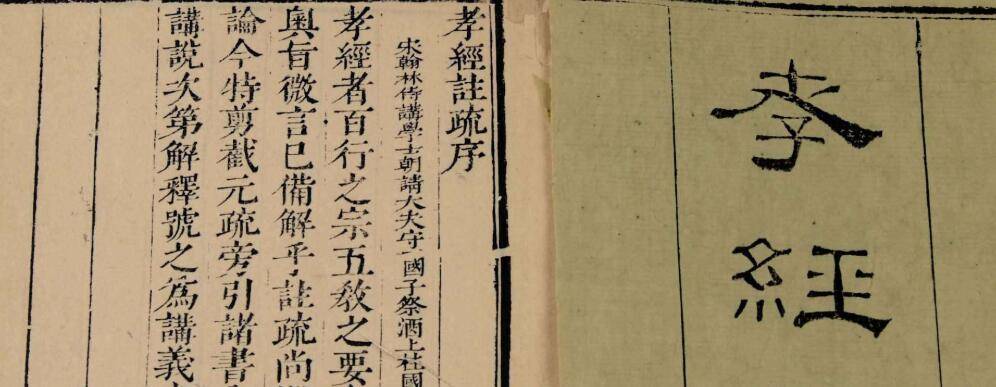 孝經
孝經註疏序
宋翰林侍講學士朝請大夫守國子祭酒上柱國
孝經者百行之宗五教之要
奥旨微言已備解乎註疏尚
論今特剪截元疏旁引諸書
講說次第解釋號之為講義